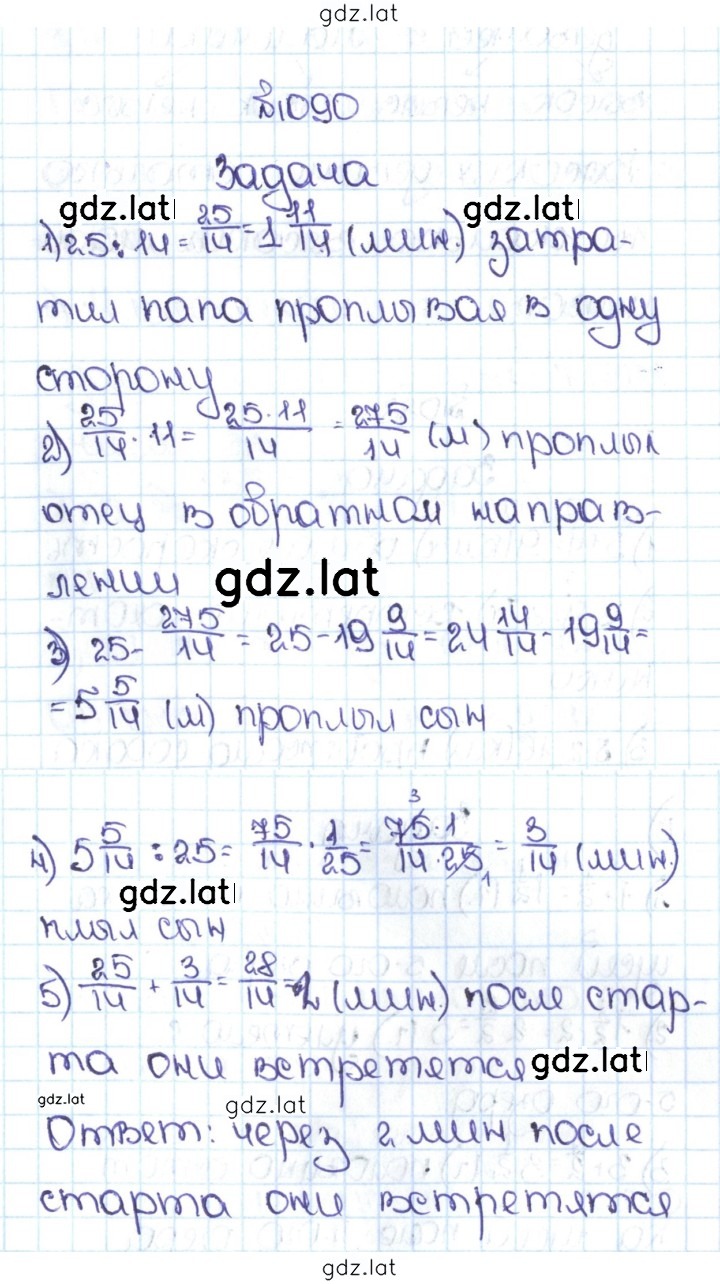 gdz.lat
№1090
Задача
gdz.lat gdz.lat
1) 25 : 14 = 25/14 = 1 11/14 (мин.) затра-
тил папа проплывая в одну
сторону
2) 25/14 · 11 = 25·11/14 = 275/14 (м) проплыл
отец в обратном направ-
лении gdz.lat
3) 25 - 275/14 = 25 - 19 9/14 = 24 14/14 - 19 9/14 =
= 5 5/14 (м) проплыл сын
4) 5 5/14 : 25 = 75/14 · 1/25 = 75·1/14·25 = 3/14 (мин.)
3 1
gdz.lat
плыл сын
5) 25/14 + 3/14 = 28/14 = 2 (мин.) после стар-
та они встретятся gdz.lat
gdz.lat gdz.lat
Ответ: через 2 мин после
старта они встретятся
gdz.lat